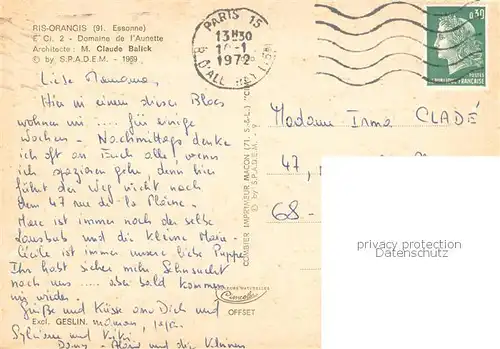 RIS-ORANGIS (91. Essonne)
E Ci. 2 - Domaine de l'Aunette
Architecte : M. Claude Balick
© by S.P.A.D.E.M. - 1969
Liebe Mamama,
Hier in einem dieser Blocs
wohnen wir ..... für einige
Wochen - Nachmittags denke
ich oft an Euch alle, wenn
ich spazieren gehe, denn hier
führt der Weg nicht nach
dem 47 rue de la Plaine.
Marc ist immer noch der selbe
Lausbub und die kleine Marie-
Cécile ist immer unsere liebe Puppe
Ihr habt sicher mehr Sehnsucht
nach uns ..... aber bald kommen
wir wieder.
Grüße und Küsse an Dich und
Excl. GESLIN. maman, papa,
Sylviane und
und die kleinen
COMBIER IMPRIMEUR MACON (71. S.-&-L.)
© by S.P.A.D.E.M.
OFFSET
PARIS 15
13H30
1972
0,30
FRANÇAISE
Madame Irma CLADÉ
47,
68-
privacy protection
Datenschutz